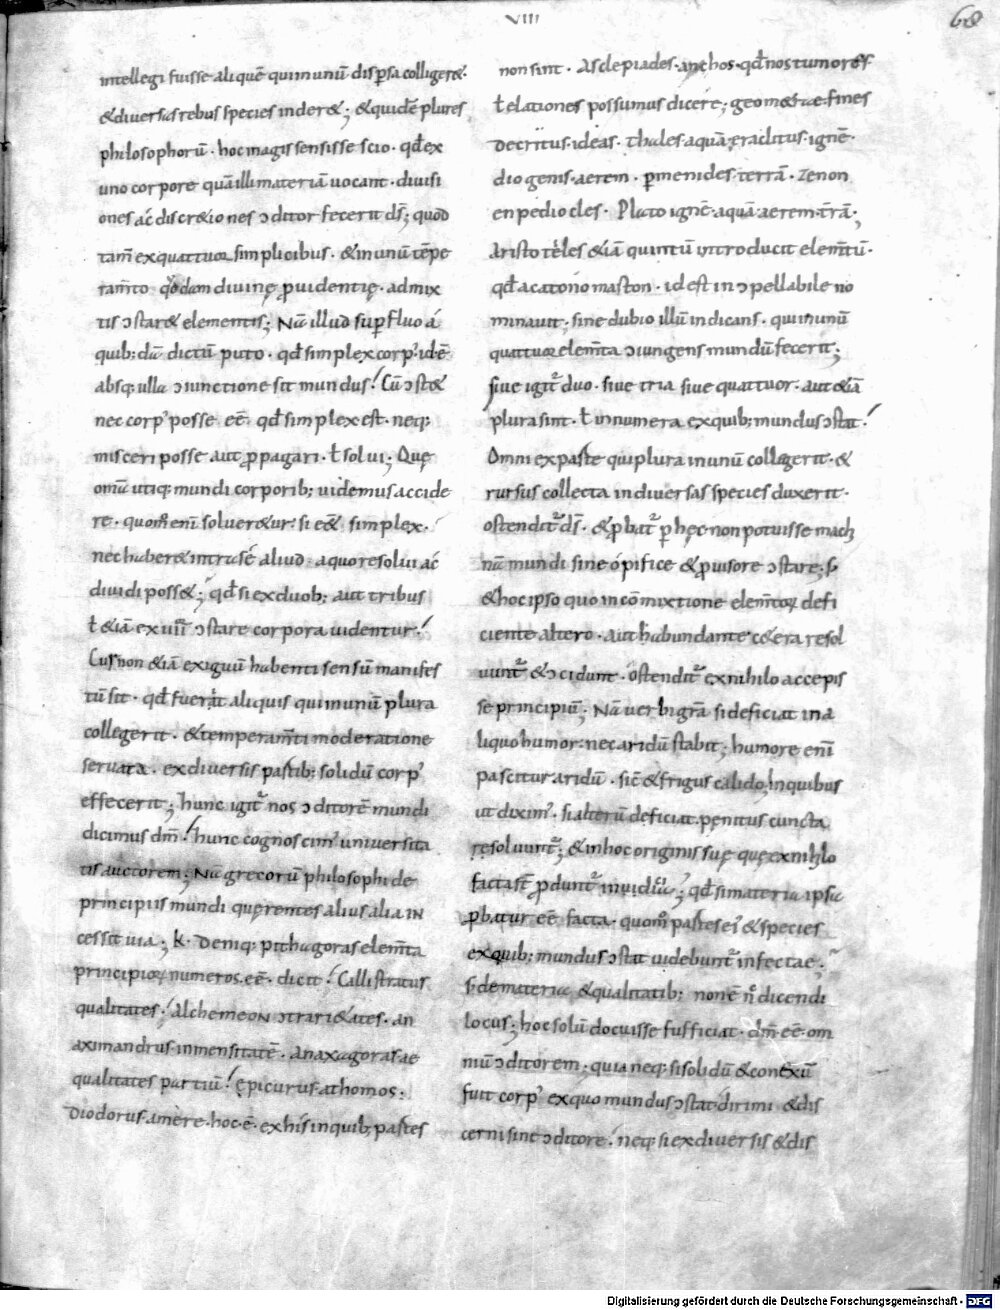 VIII
68
intellegi fuisse aliquē qui in unū disp̄sa colligeret·
& diuersas rebus species inderet; & quidē plures
philosophorū · hoc magis sensisse scio · qđ ex
uno corpore quā illi materiā uocant · diuisi
ones ac discretiones ↄditor fecerit ds̄; quod
tam̄ ex quattuor simplicibus · & in unū tēpe
ram̄to quodam diuinę prouidentię · admix
tis ↄstaret elementis; Nā illud sup̄fluo a
quib; dā dictū puto · qđ simplex corp' id ē
absq; ulla ↄiunctione sit mundus! Cū ↄstet
nec corp' posse eē qđ simplex est · neq;
misceri posse aut propagari · ł solui; Quę
omīa utiq; mundi corporib; uidemus accide
re · quom̄ enī solueretur · si eēt simplex ·
nec haberet intra sé aliud a quo resolui ac
diuidi posset; qđ si ex duob; aut tribus
ł etiā ex uii ↄstare corpora uidentur!
Cur non etiā exiguū habenti sensū manifes
tū sit · qđ fuerit aliquis qui in unū plura
collegerit · & temperam̄ti moderatione
seruata · ex diuersis partib; solidū corp'
effecerit; hunc igit̄ nos ↄditorē mundi
dicimus dm̄! hunc cognoscim' uniuersita
tis auctorem; Nā grecorū philosophi de
principiis mundi querentes alius alia in
cessit uia; k. Deniq; pithagoras elem̄ta
principiorum numeros eē dicit! Callistratus
qualitates! Alchemeon ↄtrarietates · an
aximandrus inmensitatē · Anaxagoras ae
qualitates partiū! epicurus athomos ·
Diodorus amere · hoc ē · ex his in quib; partes
non sint · Asclepiades · anchos · qđ nos tumores
ł elationes possumus dicere; geometrae fines
Decritus · ideas · Thales · aquā eraclitus · ignē ·
diogenis · aerem · p̄menides · terrā · Zenon
enpediocles · Plato ignē · aquā · aerem · t̄rā;
Aristoteles etiā quintū introducit elem̄tū ·
qđ acatonomaston · id est inↄpellabile no
minauit; sine dubio illū indicans · qui in unū
quattuor elem̄ta ↄiungens mundū fecerit;
siue igit̄ duo · siue tria siue quattuor · aut etiā
plura sint · ł innumera ex quib; mundus ↄstat!
Omni ex parte qui plura in unū collegerit · &
rursus collecta in diuersas species duxerit ·
ostendit̄ ds̄ · & probat̄ p̄ hęc non potuisse mach
nā mundi sine opifice & prouisore ↄstare; s
& hoc ipso quo in cōmixtione elem̄torum defi
ciente altero · aut habundante cetera resol
uunt̄ & ↄcidunt · ostendit̄ ex nihilo accepis
se principiū; Nā uerbi gr̄a si deficiat in a
liquo humor: nec aridū stabit; humore enī
pascitur aridū · sic & frigus calido; in quibus
ut dixim' · si alterū deficiat · penitus cuncta
resoluunt̄; & in hoc originis suę quę ex nihilo
facta st̄ produnt̄ inuidia; qđ si materia ipsa
p̄batur eē facta · quom̄ partes ei' & species
ex quib; mundus ↄstat uidebunt̄ infectae ·
S· de materia & qualitatib; non ē n̄c dicendi
locus; hoc solū docuisse sufficiat · dm̄ eē om
niū ↄditorem · quia neq; si solidū & conexū
fuit corp' ex quo mundus ↄstat dirimi & dis
cerni sine ↄditore! neq; si ex diuersis & dis
Digitalisierung gefördert durch die Deutsche Forschungsgemeinschaft - DFG